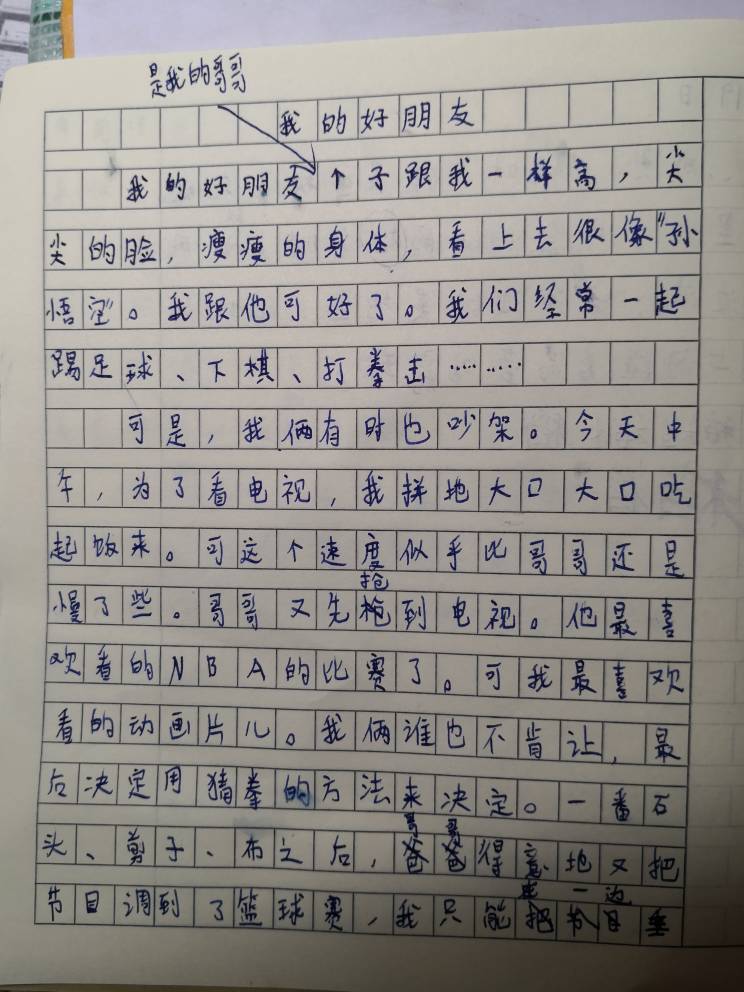 是我的哥哥
我的好朋友
我的好朋友个子跟我一样高，尖
尖的脸，瘦瘦的身体，看上去很像“孙
悟空”。我跟他可好了。我们经常一起
踢足球、下棋、打拳击………
可是，我俩有时也吵架。今天中
午，为了看电视，我拼地大口大口吃
起饭来。可这个速度似乎比哥哥还是
抢
慢了些。哥哥又先枪到电视。他最喜
欢看的NBA的比赛了。可我最喜欢
看的动画片儿。我俩谁也不肯让，最
后决定用猜拳的方法来决定。一番石
哥哥
头、剪子、布之后，爸爸得意地又把
一边
节目调到了篮球赛，我只能把垂